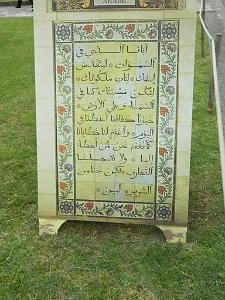 ARABE
أبانا الذي في
السموات ليتقدس
اسمك ليأت ملكوتك
لتكن مشيئتك كما في
السماء على الأرض
خبزنا كفافنا أعطنا في
اليوم واغفر لنا خطايانا
كما نغفر نحن لمن أخطأ
إلينا ولا تدخلنا
التجارب لكن نجنا من
الشرير آمين